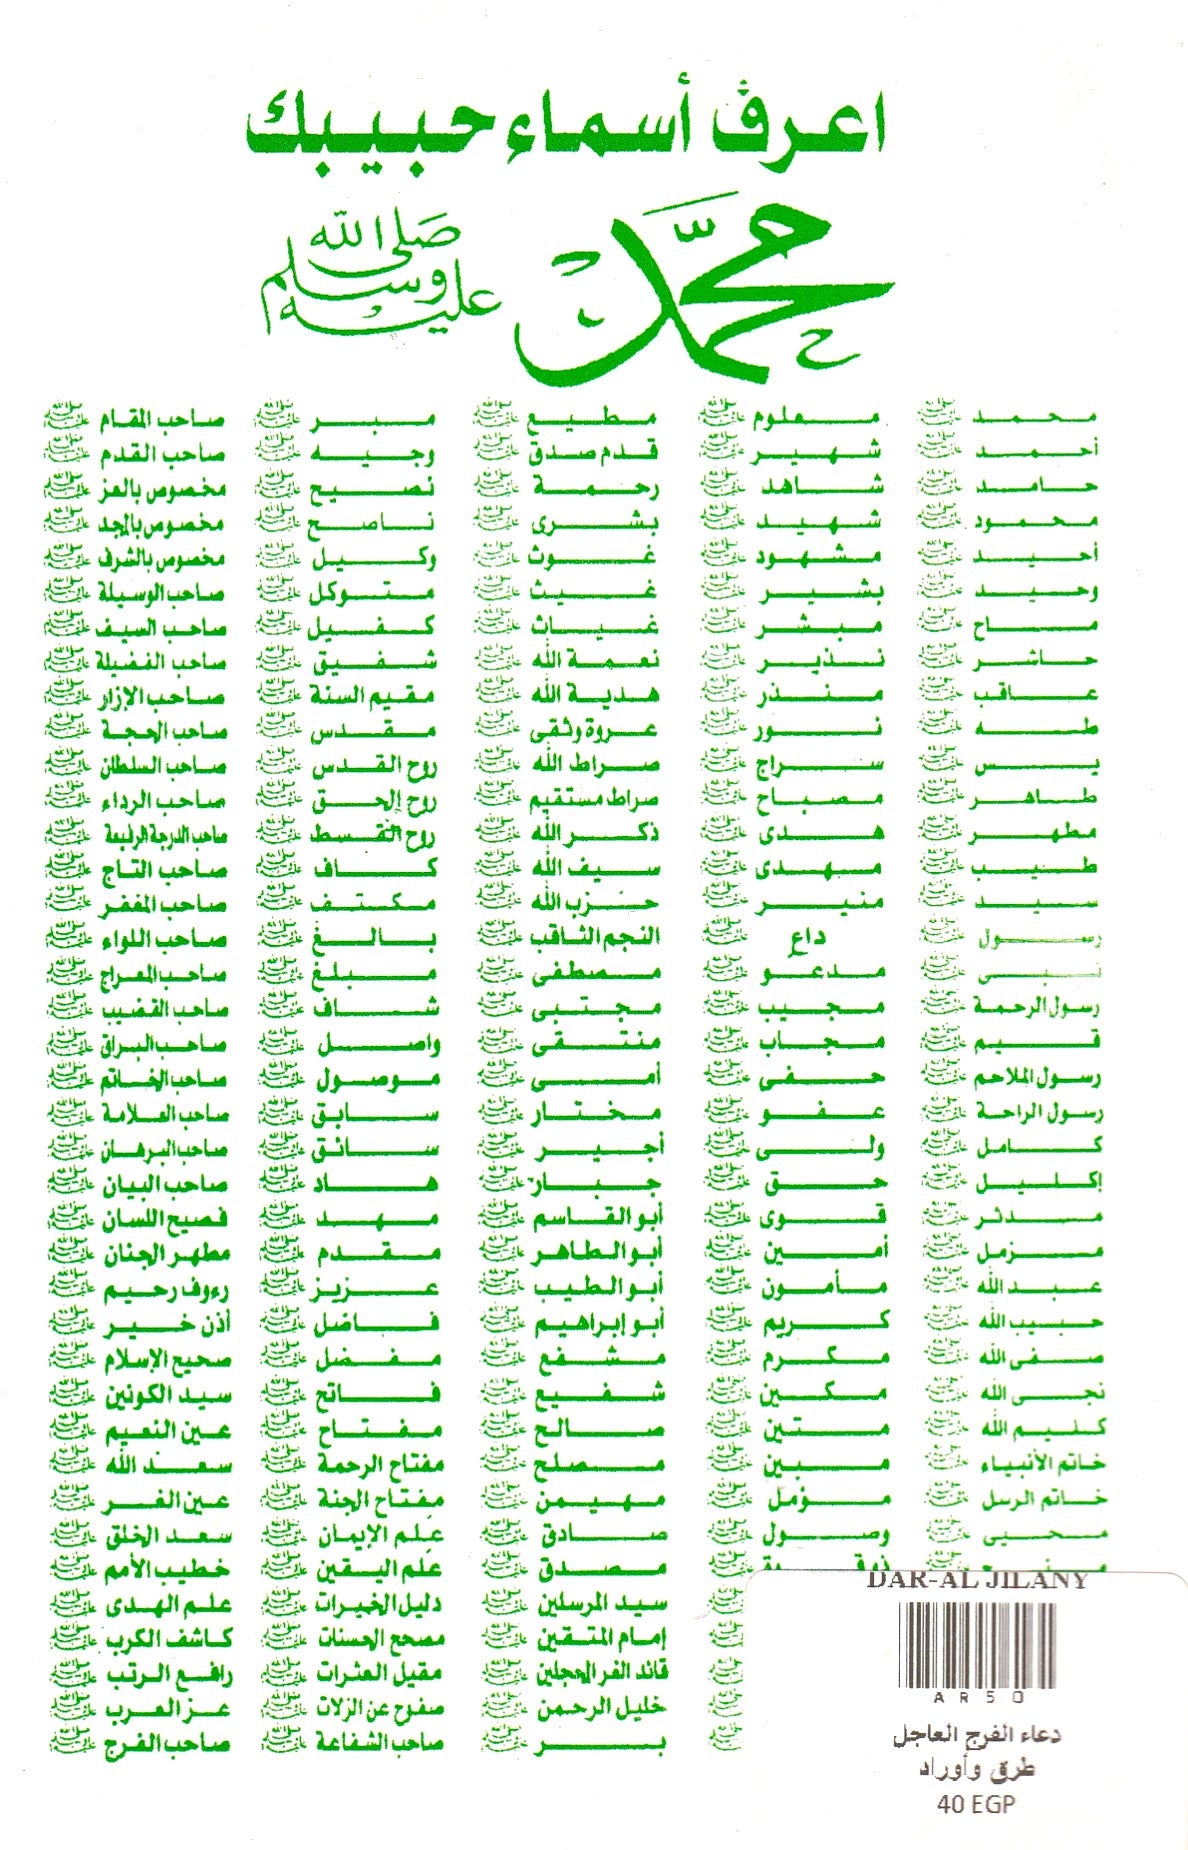 اعرف أسماء حبيبك
محمد
صلى الله عليه وسلم
محمد صلى الله عليه وسلم معلوم صلى الله عليه وسلم مطيع صلى الله عليه وسلم مبر صلى الله عليه وسلم صاحب المقام صلى الله عليه وسلم
أحمد صلى الله عليه وسلم شهير صلى الله عليه وسلم قدم صدق صلى الله عليه وسلم وجيه صلى الله عليه وسلم صاحب القدم صلى الله عليه وسلم
حامد صلى الله عليه وسلم شاهد صلى الله عليه وسلم رحمة صلى الله عليه وسلم نصيح صلى الله عليه وسلم مخصوص بالعز صلى الله عليه وسلم
محمود صلى الله عليه وسلم شهيد صلى الله عليه وسلم بشرى صلى الله عليه وسلم ناصح صلى الله عليه وسلم مخصوص بالمجد صلى الله عليه وسلم
أحيد صلى الله عليه وسلم مشهود صلى الله عليه وسلم غوث صلى الله عليه وسلم وكيل صلى الله عليه وسلم مخصوص بالشرف صلى الله عليه وسلم
وحيد صلى الله عليه وسلم بشير صلى الله عليه وسلم غيث صلى الله عليه وسلم متوكل صلى الله عليه وسلم صاحب الوسيلة صلى الله عليه وسلم
ماح صلى الله عليه وسلم مبشر صلى الله عليه وسلم غياث صلى الله عليه وسلم كفيل صلى الله عليه وسلم صاحب السيف صلى الله عليه وسلم
حاشر صلى الله عليه وسلم نذير صلى الله عليه وسلم نعمة الله صلى الله عليه وسلم شفيق صلى الله عليه وسلم صاحب الفضيلة صلى الله عليه وسلم
عاقب صلى الله عليه وسلم منذر صلى الله عليه وسلم هدية الله صلى الله عليه وسلم مقيم السنة صلى الله عليه وسلم صاحب الإزار صلى الله عليه وسلم
طه صلى الله عليه وسلم نور صلى الله عليه وسلم عروة وثقى صلى الله عليه وسلم مقدس صلى الله عليه وسلم صاحب الحجة صلى الله عليه وسلم
يس صلى الله عليه وسلم سراج صلى الله عليه وسلم صراط الله صلى الله عليه وسلم روح القدس صلى الله عليه وسلم صاحب السلطان صلى الله عليه وسلم
طاهر صلى الله عليه وسلم مصباح صلى الله عليه وسلم صراط مستقيم صلى الله عليه وسلم روح الحق صلى الله عليه وسلم صاحب الرداء صلى الله عليه وسلم
مطهر صلى الله عليه وسلم هدى صلى الله عليه وسلم ذكر الله صلى الله عليه وسلم روح القسط صلى الله عليه وسلم صاحب الدرجة الرفيعة صلى الله عليه وسلم
طيب صلى الله عليه وسلم مهدى صلى الله عليه وسلم سيف الله صلى الله عليه وسلم كاف صلى الله عليه وسلم صاحب التاج صلى الله عليه وسلم
سيد صلى الله عليه وسلم منير صلى الله عليه وسلم حزب الله صلى الله عليه وسلم مكتف صلى الله عليه وسلم صاحب المغفر صلى الله عليه وسلم
رسول صلى الله عليه وسلم داع صلى الله عليه وسلم النجم الثاقب صلى الله عليه وسلم بالغ صلى الله عليه وسلم صاحب اللواء صلى الله عليه وسلم
نبى صلى الله عليه وسلم مدعو صلى الله عليه وسلم مصطفى صلى الله عليه وسلم مبلغ صلى الله عليه وسلم صاحب المعراج صلى الله عليه وسلم
رسول الرحمة صلى الله عليه وسلم مجيب صلى الله عليه وسلم مجتبى صلى الله عليه وسلم شاف صلى الله عليه وسلم صاحب القضيب صلى الله عليه وسلم
قيم صلى الله عليه وسلم مجاب صلى الله عليه وسلم منتقى صلى الله عليه وسلم واصل صلى الله عليه وسلم صاحب البراق صلى الله عليه وسلم
رسول الملاحم صلى الله عليه وسلم حفى صلى الله عليه وسلم أمى صلى الله عليه وسلم موصول صلى الله عليه وسلم صاحب الخاتم صلى الله عليه وسلم
رسول الراحة صلى الله عليه وسلم عفو صلى الله عليه وسلم مختار صلى الله عليه وسلم سابق صلى الله عليه وسلم صاحب العلامة صلى الله عليه وسلم
كامل صلى الله عليه وسلم ولى صلى الله عليه وسلم أجير صلى الله عليه وسلم سائق صلى الله عليه وسلم صاحب البرهان صلى الله عليه وسلم
إكليل صلى الله عليه وسلم حق صلى الله عليه وسلم جبار صلى الله عليه وسلم هاد صلى الله عليه وسلم صاحب البيان صلى الله عليه وسلم
مدثر صلى الله عليه وسلم قوى صلى الله عليه وسلم أبو القاسم صلى الله عليه وسلم مهد صلى الله عليه وسلم فصيح اللسان صلى الله عليه وسلم
مزمل صلى الله عليه وسلم أمين صلى الله عليه وسلم أبو الطاهر صلى الله عليه وسلم مقدم صلى الله عليه وسلم مطهر الجنان صلى الله عليه وسلم
عبد الله صلى الله عليه وسلم مأمون صلى الله عليه وسلم أبو الطيب صلى الله عليه وسلم عزيز صلى الله عليه وسلم رءوف رحيم صلى الله عليه وسلم
حبيب الله صلى الله عليه وسلم كريم صلى الله عليه وسلم أبو إبراهيم صلى الله عليه وسلم فاضل صلى الله عليه وسلم أذن خير صلى الله عليه وسلم
صفى الله صلى الله عليه وسلم مكرم صلى الله عليه وسلم مشفع صلى الله عليه وسلم مفضل صلى الله عليه وسلم صحيح الإسلام صلى الله عليه وسلم
نجى الله صلى الله عليه وسلم مكين صلى الله عليه وسلم شفيع صلى الله عليه وسلم فاتح صلى الله عليه وسلم سيد الكونين صلى الله عليه وسلم
كليم الله صلى الله عليه وسلم متين صلى الله عليه وسلم صالح صلى الله عليه وسلم مفتاح صلى الله عليه وسلم عين النعيم صلى الله عليه وسلم
خاتم الأنبياء صلى الله عليه وسلم مبين صلى الله عليه وسلم مصلح صلى الله عليه وسلم مفتاح الرحمة صلى الله عليه وسلم سعد الله صلى الله عليه وسلم
خاتم الرسل صلى الله عليه وسلم مؤمل صلى الله عليه وسلم مهيمن صلى الله عليه وسلم مفتاح الجنة صلى الله عليه وسلم عين الغر صلى الله عليه وسلم
محيى صلى الله عليه وسلم وصول صلى الله عليه وسلم صادق صلى الله عليه وسلم علم الإيمان صلى الله عليه وسلم سعد الخلق صلى الله عليه وسلم
صلى الله عليه وسلم مصدق صلى الله عليه وسلم علم اليقين صلى الله عليه وسلم خطيب الأمم صلى الله عليه وسلم
سيد المرسلين صلى الله عليه وسلم دليل الخيرات صلى الله عليه وسلم علم الهدى صلى الله عليه وسلم
إمام المتقين صلى الله عليه وسلم مصحح الحسنات صلى الله عليه وسلم كاشف الكرب صلى الله عليه وسلم
قائد الغر المحجلين صلى الله عليه وسلم مقيل العثرات صلى الله عليه وسلم رافع الرتب صلى الله عليه وسلم
خليل الرحمن صلى الله عليه وسلم صفوح عن الزلات صلى الله عليه وسلم عز العرب صلى الله عليه وسلم
بر صلى الله عليه وسلم صاحب الشفاعة صلى الله عليه وسلم صاحب الفرج صلى الله عليه وسلم
DAR-AL JILANY
AR50
دعاء الفرج العاجل
طرق وأوراد
40 EGP